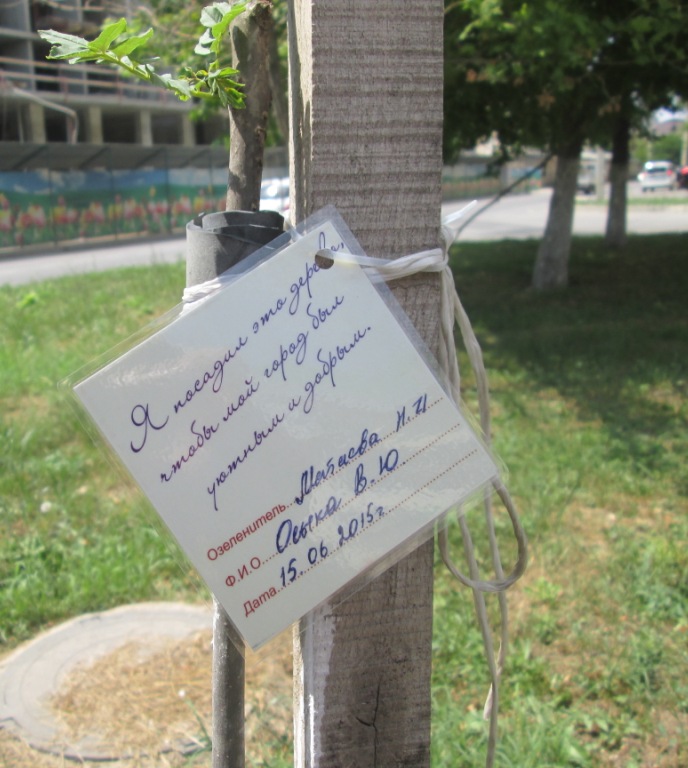 Я посадил это дерево,
чтобы мой город был
уютным и добрым.
Озеленитель Матаева Н.И
Ф.И.О. Осыка В.Ю
Дата 15.06.2015г